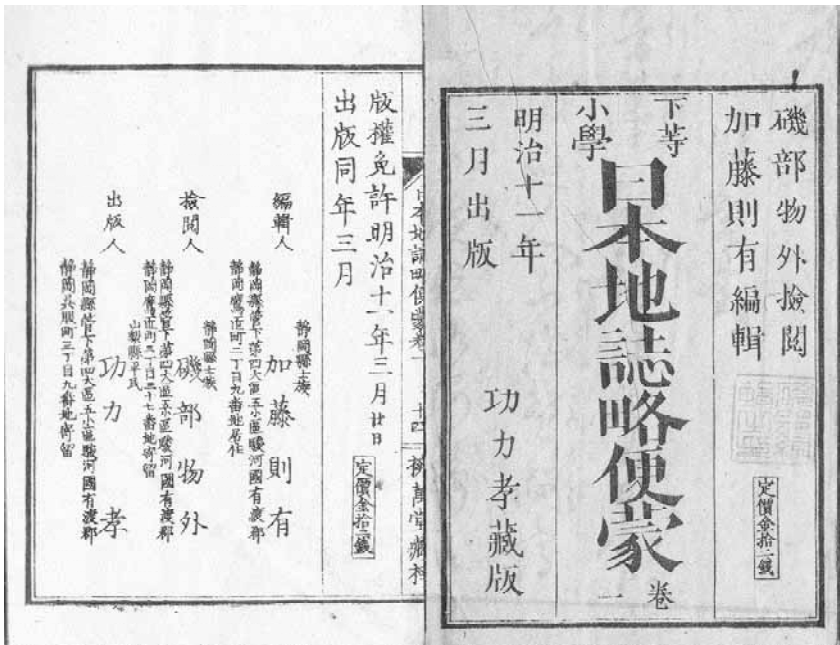 磯部物外撿閲
加藤則有編輯
定價金拾二銭
下等
小學
日本地誌略便蒙
卷一
明治十一年
三月出版
功力孝藏版
日本地誌略便蒙卷一
十四
版權免許明治十一年三月廿日
出版同年三月
定價金拾二銭
編輯人
靜岡縣士族
加藤則有
靜岡縣管下第四大區五小區駿河國有渡郡
靜岡鷹匠町二丁目九番地居住
撿閲人
靜岡縣士族
磯部物外
靜岡縣管下第四大區五小區駿河國有渡郡
出版人
山梨縣平民
功力孝
靜岡縣管下第四大區五小區駿河國有渡郡
靜岡呉服町三丁目九番地寄留